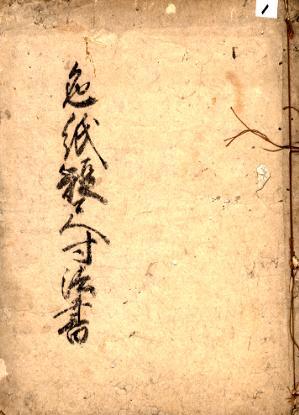 色紙短尺寸法書
1